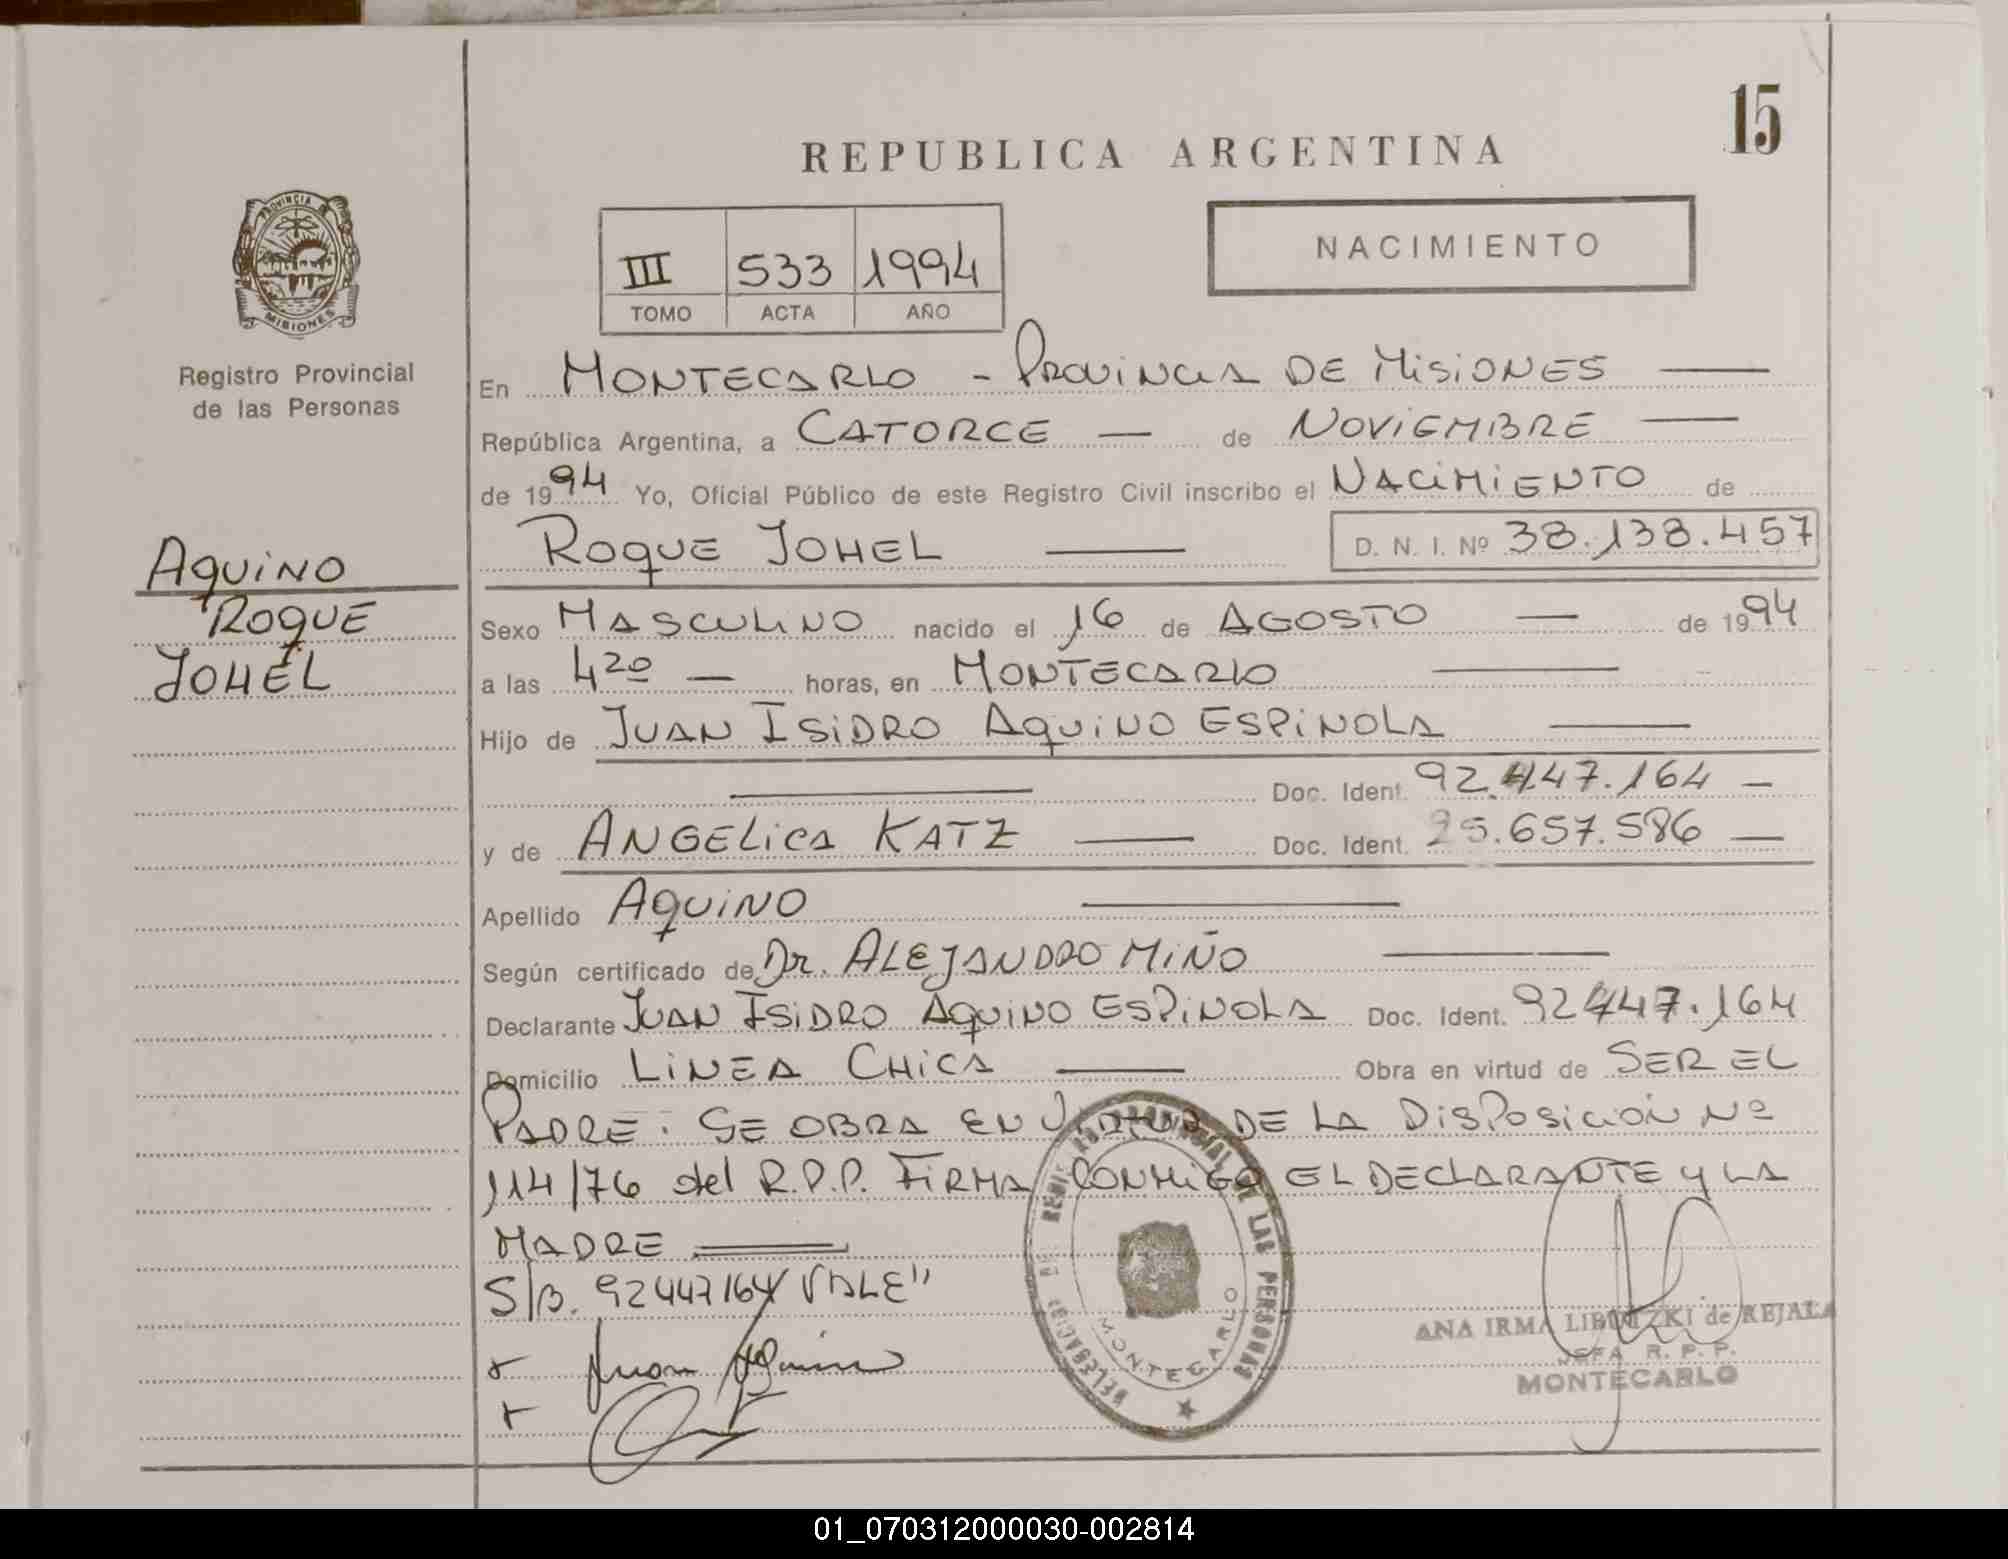 15
REPUBLICA ARGENTINA
PROVINCIA DE
MISIONES
Registro Provincial
de las Personas
NACIMIENTO
III 533 1994
TOMO ACTA AÑO
En MONTECARLO - PROVINCIA DE MISIONES
República Argentina, a CATORCE — de NOVIEMBRE —
de 1994 Yo, Oficial Público de este Registro Civil inscribo el NACIMIENTO de
ROQUE JOHEL — D. N. I. Nº 38.138.457
AQUINO
ROQUE
JOHEL
Sexo MASCULINO nacido el 16 de AGOSTO — de 1994
a las 4 20 — horas, en MONTECARLO —
Hijo de JUAN ISIDRO AQUINO ESPINOLA —
— Doc. Ident. 92.447.164 —
y de ANGELICA KATZ — Doc. Ident. 25.657.586 —
Apellido AQUINO —
Según certificado de Dr. ALEJANDRO MIÑO —
Declarante JUAN ISIDRO AQUINO ESPINOLA Doc. Ident. 92447.164
Domicilio LINEA CHICA — Obra en virtud de SER EL
PADRE: SE OBRA EN VIRTUD DE LA DISPOSICION Nº
114/76 del R.P.P. FIRMA CONMIGO EL DECLARANTE Y LA
MADRE
S/B. 92447164 VALE"
Juan Aquino
DELEGACION DE REGISTRO PROVINCIAL DE LAS PERSONAS
MONTECARLO
ANA IRMA de REJALA
JEFA R. P. P.
MONTECARLO
01_070312000030-002814